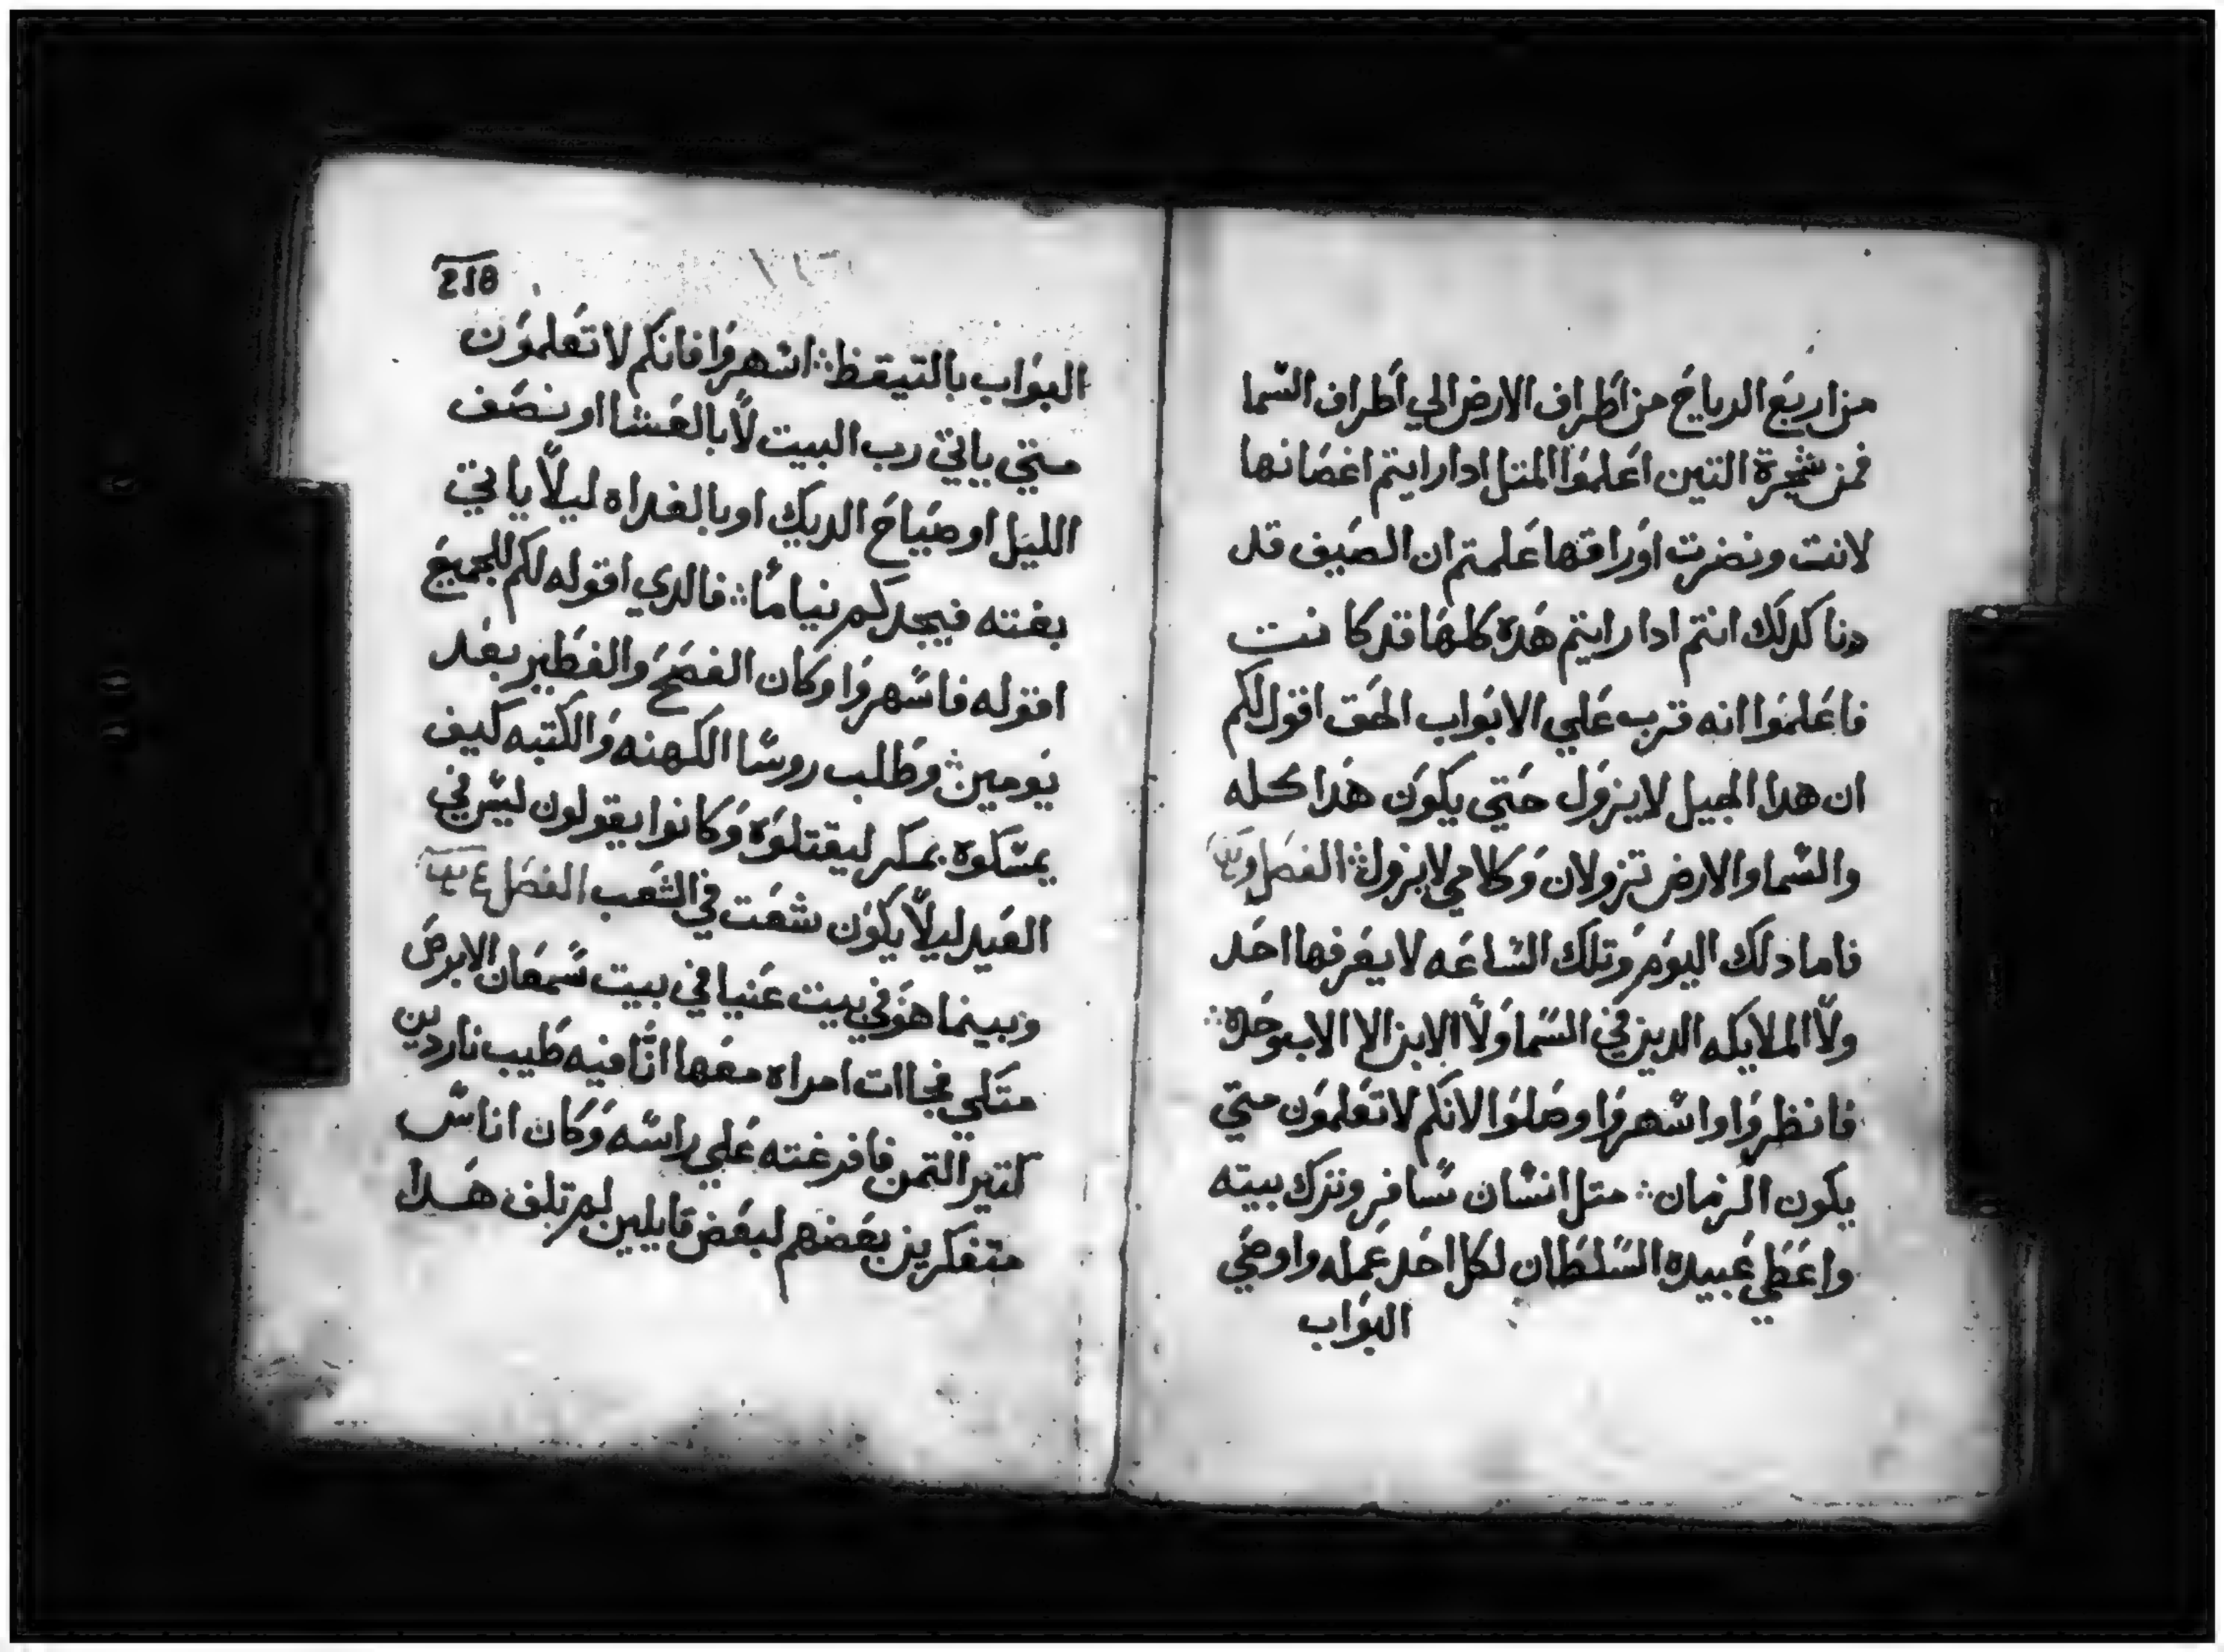 من اربع الرياح من اطراف الارض الي اطراف السما
فمن شجرة التين اعلموا المتل ادا رايتم اغصانها
لانت ونضرت اوراقها علمتم ان الصيف قد
دنا كدلك انتم ادا رايتم هده كلها قد كانت
فاعلموا انه قرب علي الابواب الحق اقول لكم
ان هدا الجيل لا يزول حتي يكون هدا كله
والسما والارض تزولان وكلامي لا يزول ⁘ الفصل
فاما دلك اليوم وتلك الساعه لا يعرفها احد
ولا الملايكه الدين في السما ولا الابن الا الاب وحده ⁘
فانظروا واسهروا وصلوا لانكم لا تعلمون متي
يكون الزمان ⁘ متل انسان سافر وترك بيته
واعطي عبيده السلطان لكل احد عمله واوصي
البواب
218
البواب بالتيقظ ⁘ اسهروا فانكم لا تعلمون
متي ياتي رب البيت لا بالعشا او نصف
الليل او صياح الديك او بالغداه ليلا ياتي
بغته فيجدكم نياما ⁘ فالدي اقوله لكم للجميع
اقوله فاسهروا وكان الفصح والفطير بعد
يومين ⁘ وطلب روسا الكهنه والكتبه كيف
يمسكوه بمكر ليقتلوه وكانوا يقولون ليس في
العيد ليلا يكون شعت في الشعب الفصل
وبينما هو في بيت عنيا في بيت سمعان الابرص
متكي فجاات امراه معها انا فيه طيب ناردين
كتير التمن فافرغته علي راسه وكان اناس
متفكرين بعضهم لبعض قايلين لم تلف هدا